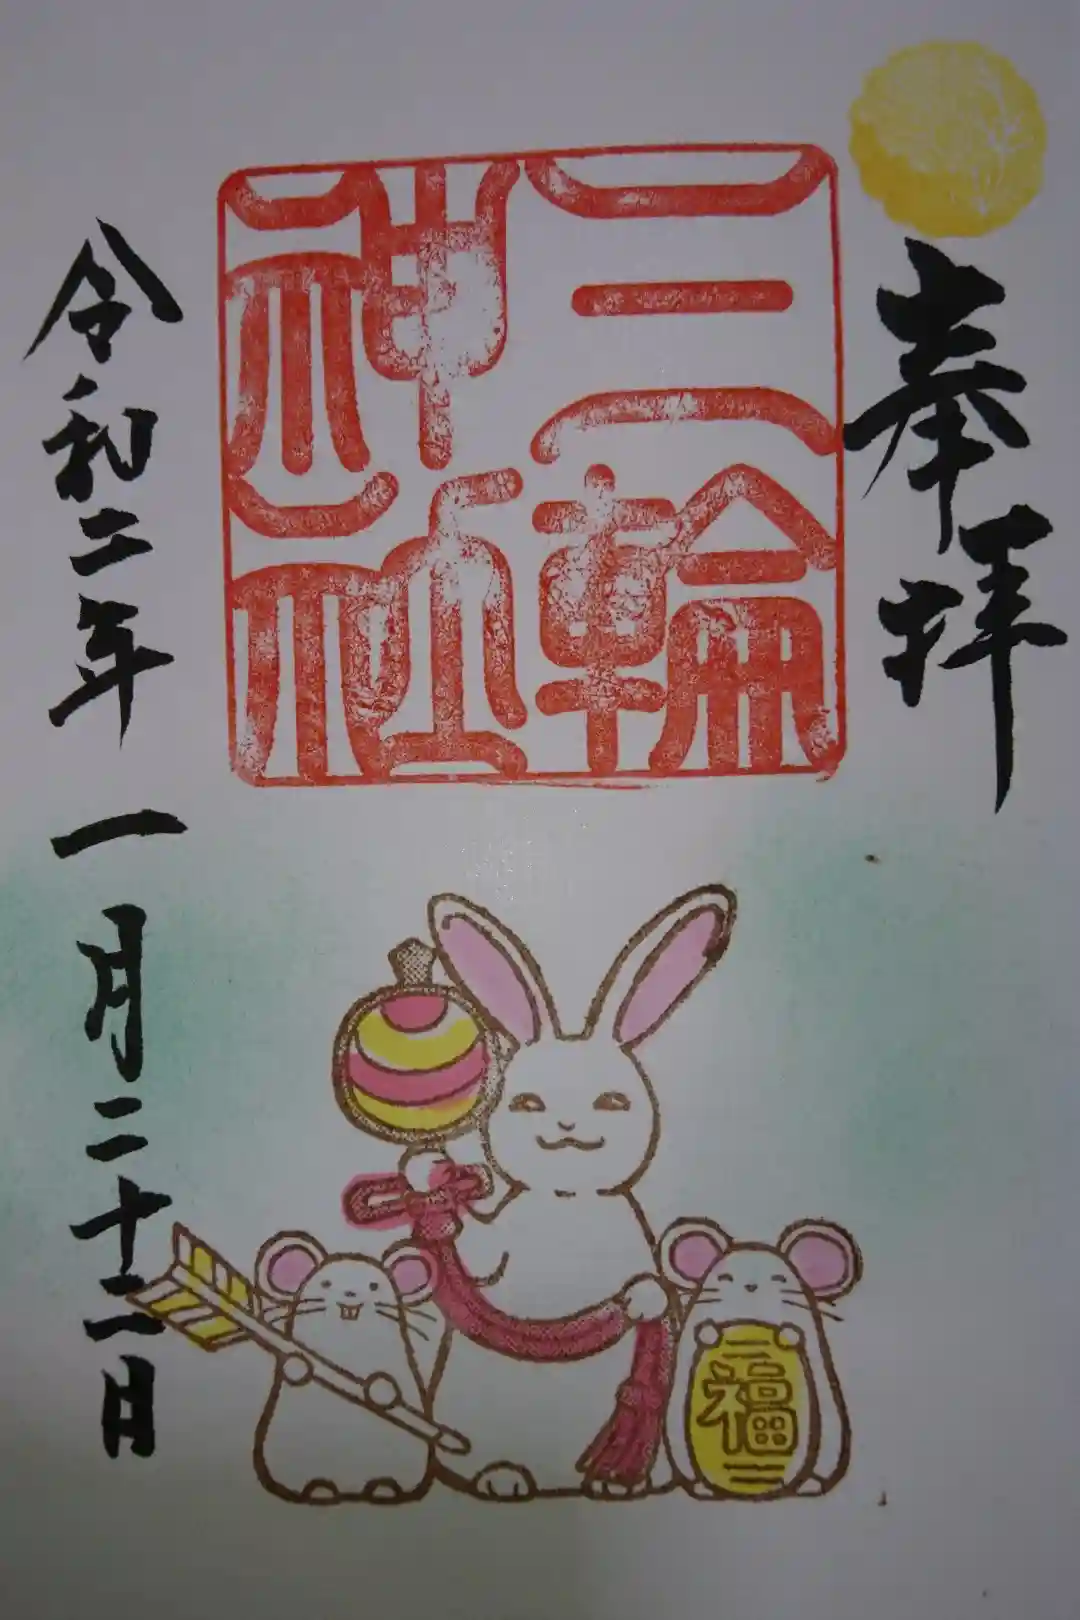 奉拝
三輪
神社
令和二年一月二十二日
福